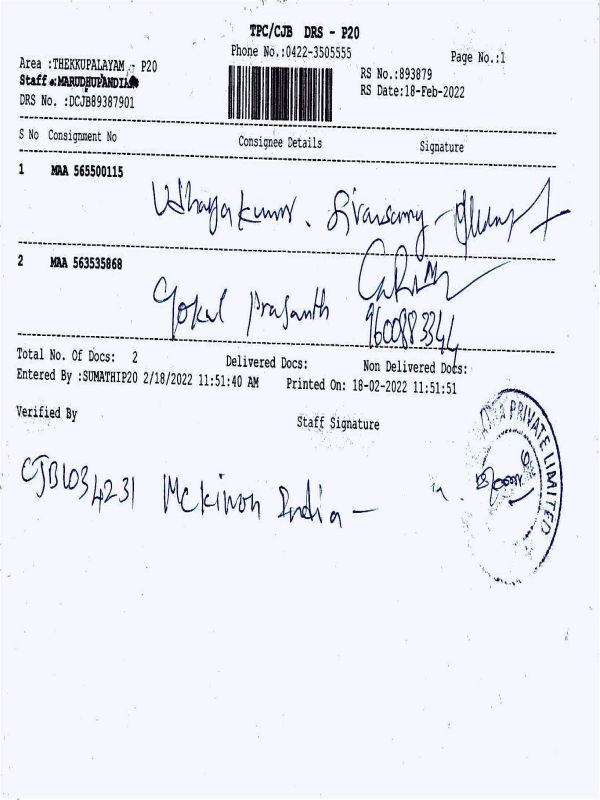 TPC/CJB DRS - P20
Phone No.:0422-3505555
Page No.:1
Area :THEKKUPALAYAM - P20
Staff :MARUDHUPANDIAN
DRS No. :DCJB89387901
RS No.:893879
RS Date:18-Feb-2022
S No Consignment No Consignee Details Signature
1 MAA 565500115
Udhayakumar. Sivansamy -
2 MAA 563535868
Gokul Prasanth
9600883344
Total No. Of Docs: 2 Delivered Docs: Non Delivered Docs:
Entered By :SUMATHIP20 2/18/2022 11:51:40 AM Printed On: 18-02-2022 11:51:51
Verified By Staff Signature
PRIVATE LIMITED
CJB1034231 Mckinon India -